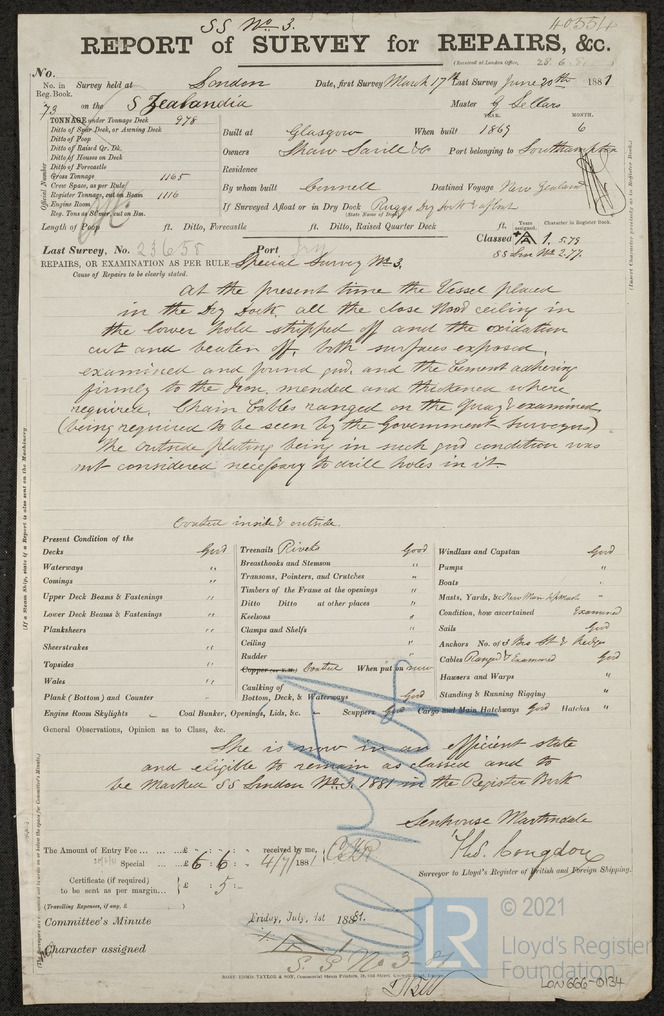 SS No. 3. 40554
REPORT of SURVEY for REPAIRS, &c.
(Received at London Office,
No.
No. in Reg. Book. Survey held at London Date, first Survey March 17th Last Survey June 20th 1881
73 on the S Zealandia Master J Sellars
TONNAGE under Tonnage Deck 978
Ditto of Spar Deck, or Awning Deck
Ditto of Poop
Ditto of Raised Qr. Dk.
Ditto of Houses on Deck
Ditto of Forecastle
Gross Tonnage 1165
Crew Space, as per Rule
Register Tonnage, cut on Beam 1116
Engine Room
Reg. Tons as Steamer, cut on Bm.
Official Number
Built at Glasgow When built YEAR. 1869 MONTH. 6
Owners Shaw Savill & Co Port belonging to Southampton
Residence
By whom built Connell Destined Voyage New Zealand
If Surveyed Afloat or in Dry Dock Ruggs Dry Dock & afloat
(State Name of Dock)
Length of Poop ft. Ditto, Forecastle ft. Ditto, Raised Quarter Deck ft.
Years assigned. Character in Register Book.
Classed A 1. 5.79
SS Lon No 2.77.
Last Survey, No. 23658 Port
REPAIRS, OR EXAMINATION AS PER RULE Special Survey No. 3.
Cause of Repairs to be clearly stated.
At the present time the Vessel placed
in the Dry Dock, all the close Wood ceiling in
the lower hold stripped off and the oxidation
cut and beaten off, both surfaces exposed,
examined and found good, and the Cement adhering
firmly to the Iron, mended and thickened where
required. Chain Cables ranged on the Quay & examined
(being required to be seen by the Government Surveyors)
The outside plating being in such good condition was
not considered necessary to drill holes in it.
Coated inside & outside.
(If a Steam Ship, state if a Report is also sent on the Machinery)
Present Condition of the
Decks Good
Waterways "
Comings "
Upper Deck Beams & Fastenings "
Lower Deck Beams & Fastenings "
Planksheers "
Sheerstrakes "
Topsides "
Wales "
Plank (Bottom) and Counter "
Treenails Rivets Good
Breasthooks and Stemson "
Transoms, Pointers, and Crutches "
Timbers of the Frame at the openings "
Ditto Ditto at other places "
Keelsons "
Clamps and Shelfs "
Ceiling "
Rudder "
Copper Coated When put on now
Caulking of Bottom, Deck, & Waterways Good
Windlass and Capstan Good
Pumps "
Boats "
Masts, Yards, &c
Condition, how ascertained Examined
Sails Good
Anchors No. of
Cables Ranged & Examined Good
Hausers and Warps "
Standing & Running Rigging "
Engine Room Skylights Coal Bunker, Openings, Lids, &c. Scuppers Good Cargo and Main Hatchways Good Hatches "
General Observations, Opinion as to Class, &c.
She is now in an efficient state
and eligible to remain as classed and to
be Marked SS London No. 3. 1881 in the Register Book
Senhouse Martindale
Thos. Congdon
Surveyor to Lloyd's Register of British and Foreign Shipping.
The Amount of Entry Fee ... £ : : received by me,
Special £ 6 : 6 : 4/7/1881
Certificate (if required) to be sent as per margin... £ : 5 :
(Travelling Expenses, if any, £ )
Committee's Minute Friday, July, 1st 1881.
Character assigned
S. S. No 3-81
© 2021
LR Lloyd's Register
Foundation
LON666-0134